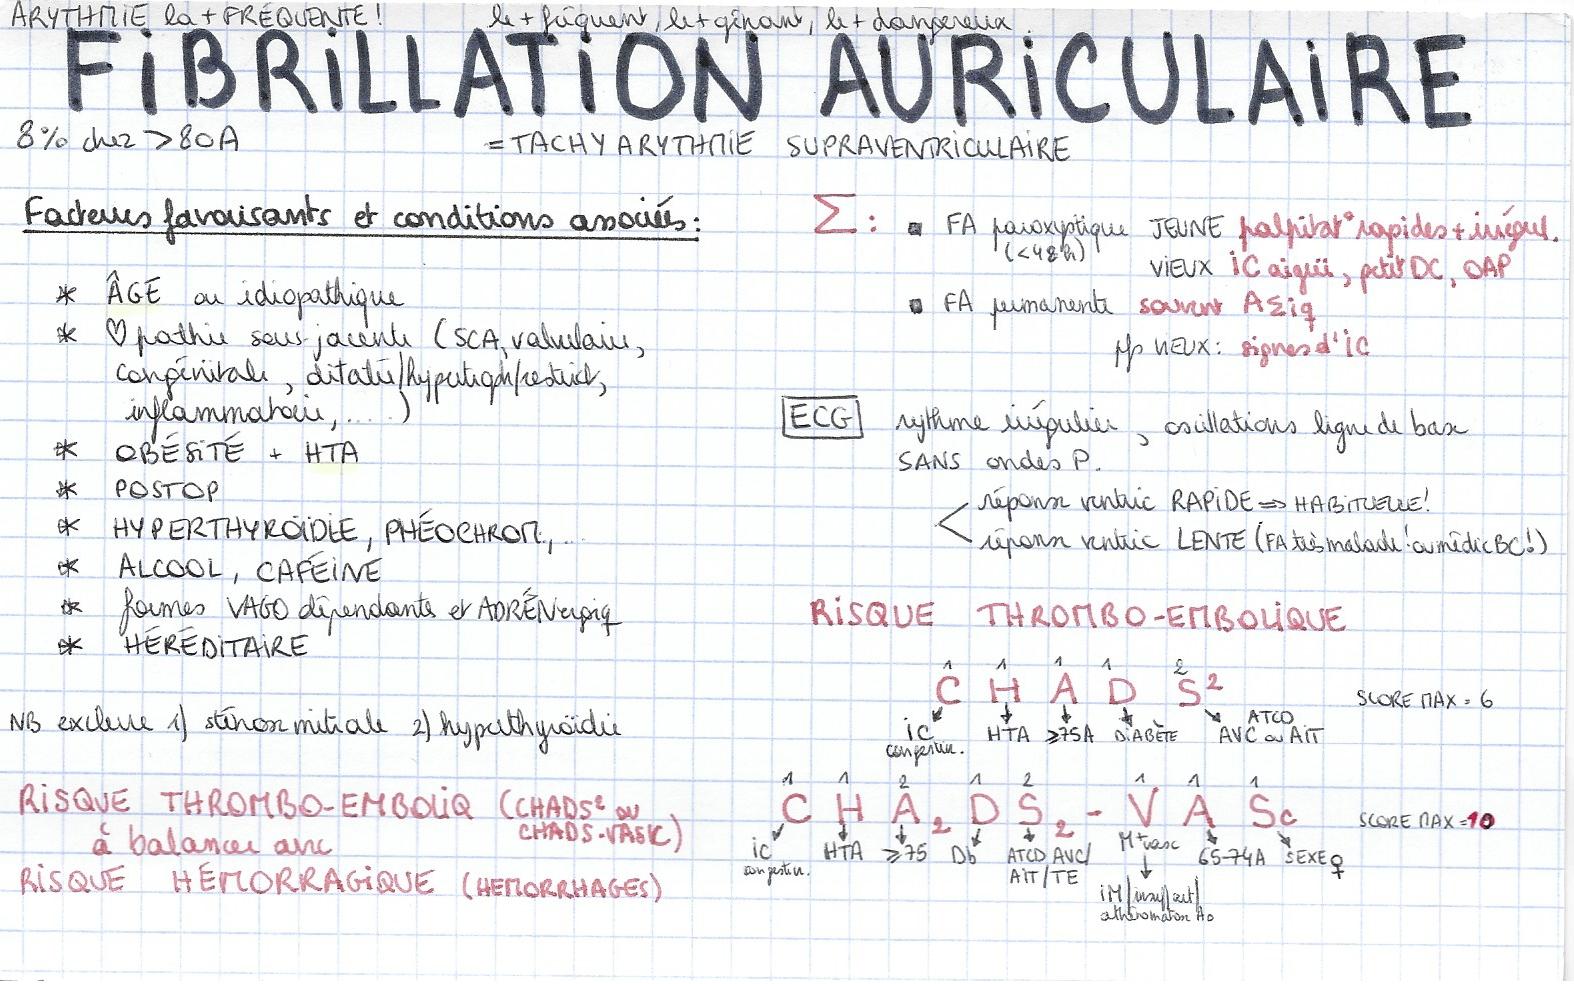 ARYTHMIE la + FRÉQUENTE !
le + fréquent, le + gênant, le + dangereux.
FIBRILLATION AURICULAIRE
8% chez > 80A
= TACHYARYTHMIE SUPRAVENTRICULAIRE
Facteurs favorisants et conditions associées :
* ÂGE ou idiopathique
* ♡pathie sous-jacente (SCA, valvulaire,
congénitale, dilatée/hypertroph/restrict,
inflammatoire, ....)
* OBÉSITÉ + HTA
* POSTOP
* HYPERTHYROÏDIE, PHÉOCHROM, ...
* ALCOOL, CAFÉINE
* formes VAGO dépendante et ADRÉNergiq
* HÉRÉDITAIRE
NB exclure 1) sténose mitrale 2) hyperthyroïdie
RISQUE THROMBO-EMBOLIQ (CHADS² ou
CHADS-VASC)
à balancer avec
RISQUE HÉMORRAGIQUE (HEMORRHAGES)
Σ :
▪ FA paroxyptique JEUNE palpitat° rapides + irrégul.
(<48h)
VIEUX IC aiguë, petit DC, OAP
▪ FA permanente souvent AΣiq
pfs VIEUX : signes d'IC
ECG rythme irrégulier, oscillations ligne de base
SANS ondes P.
< réponse ventric RAPIDE => HABITUELLE !
réponse ventric LENTE (FA très malade ! ou médic BC !)
RISQUE THROMBO-EMBOLIQUE
1 1 1 1 2
C H A D S² SCORE MAX = 6
IC congestiv. HTA ≥75A DIABÈTE ATCD AVC ou AIT
1 1 2 1 2 1 1 1
C H A₂ D S₂ - V A Sc SCORE MAX = 10
IC congestiv. HTA ≥75 Db ATCD AVC/ AIT/TE M+vasc 65-74A SEXE ♀
IM/insuf art/
athéromatose Ao